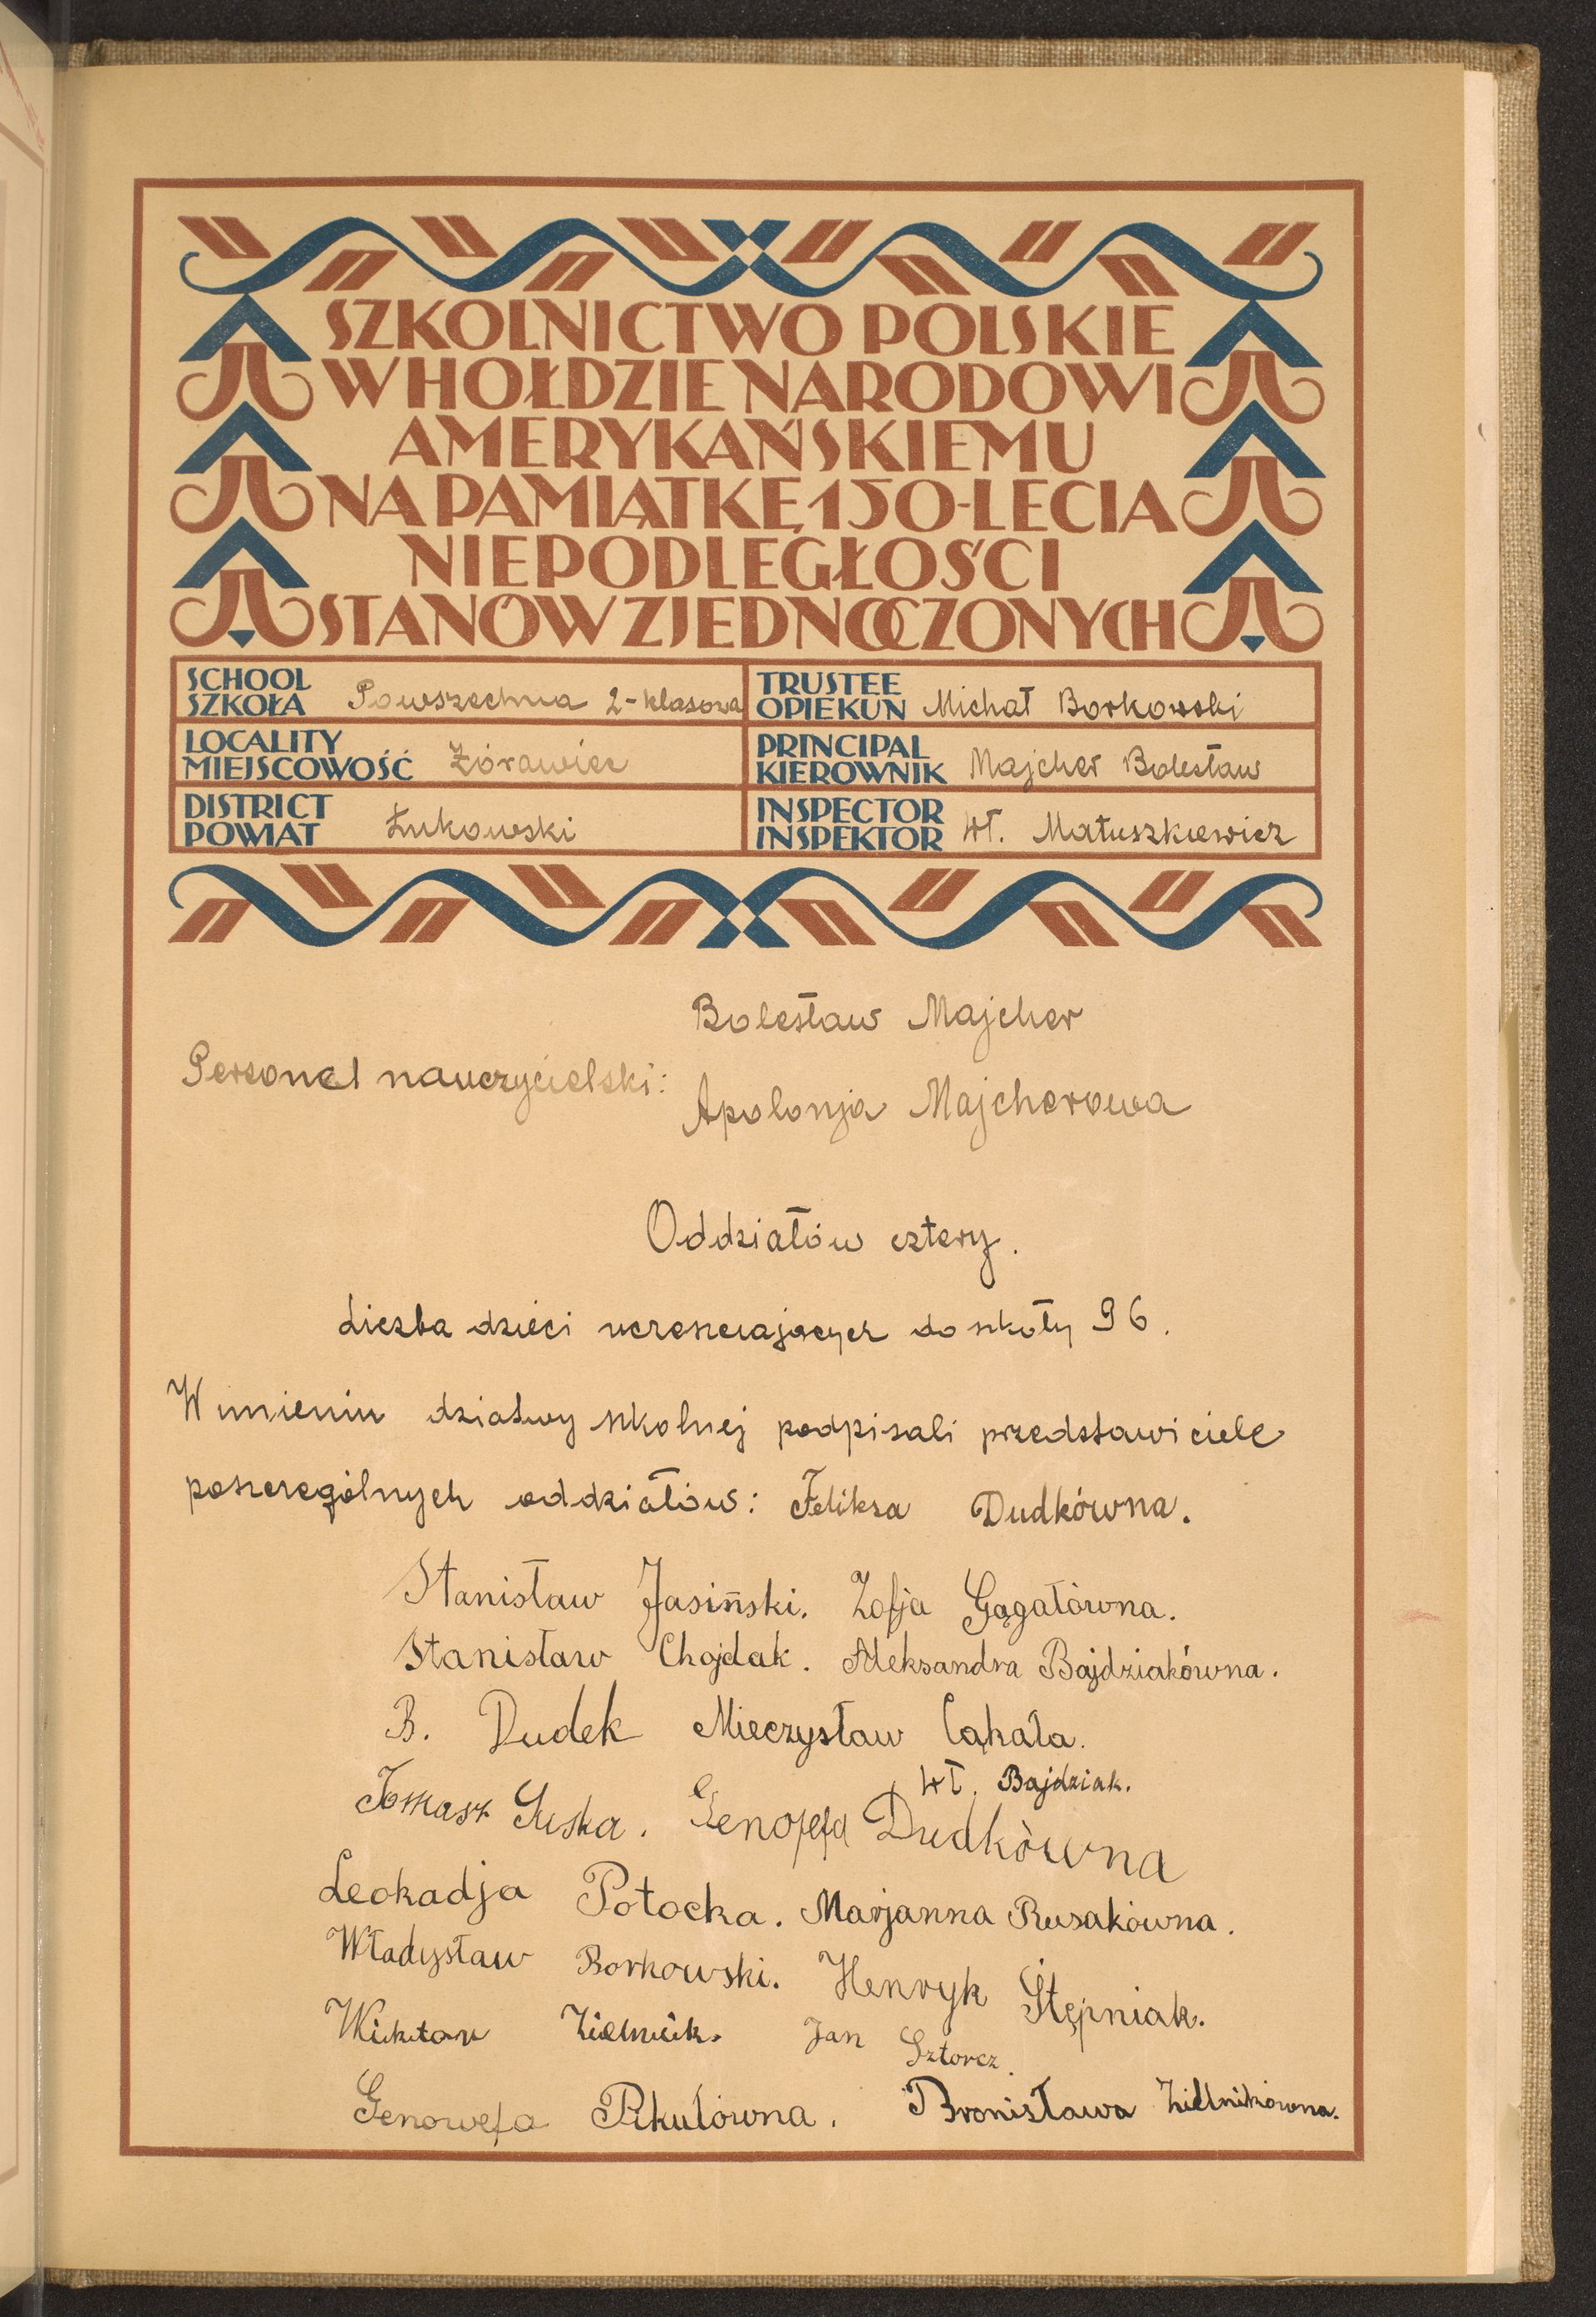 SZKOLNICTWO POLSKIE
W HOŁDZIE NARODOWI
AMERYKAŃSKIEMU
NA PAMIĄTKĘ 150-LECIA
NIEPODLEGŁOŚCI
STANÓW ZJEDNOCZONYCH
SCHOOL
SZKOŁA Powszechna 2-klasowa
TRUSTEE
OPIEKUN Michał Borkowski
LOCALITY
MIEJSCOWOŚĆ Żórawiec
PRINCIPAL
KIEROWNIK Majcher Bolesław
DISTRICT
POWIAT Łukowski
INSPECTOR
INSPEKTOR Wł. Matuszkiewicz
Bolesław Majcher
Personel nauczycielski:
Apolonja Majcherowa
Oddziałów cztery.
Liczba dzieci uczęszczających do szkoły 96.
W imieniu dziatwy szkolnej podpisali przedstawiciele
poszczególnych oddziałów: Feliksa Dudkówna.
Stanisław Jasiński. Zofja Gągałówna.
Stanisław Chojdak. Aleksandra Bajdziakówna.
B. Dudek Mieczysław Cąkała.
Wł. Bajdziak.
Tomasz Suska. Genofefa Dudkówna
Leokadja Potocka. Marjanna Rusakówna.
Władysław Borkowski. Henryk Stępniak.
Wiktor Zielnik. Jan Sztorcz.
Genowefa Pikulówna. Bronisława Zielnikówna.